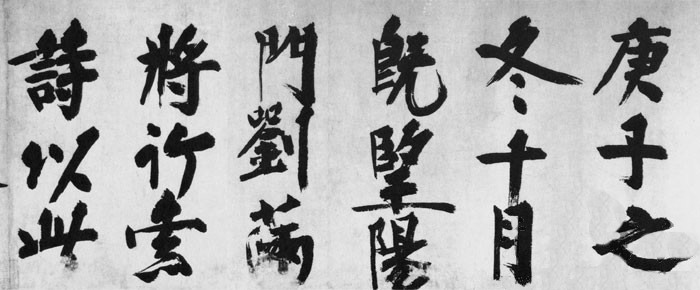 庚子之
冬十月
既望陽
門劉滿
將行索
詩以此